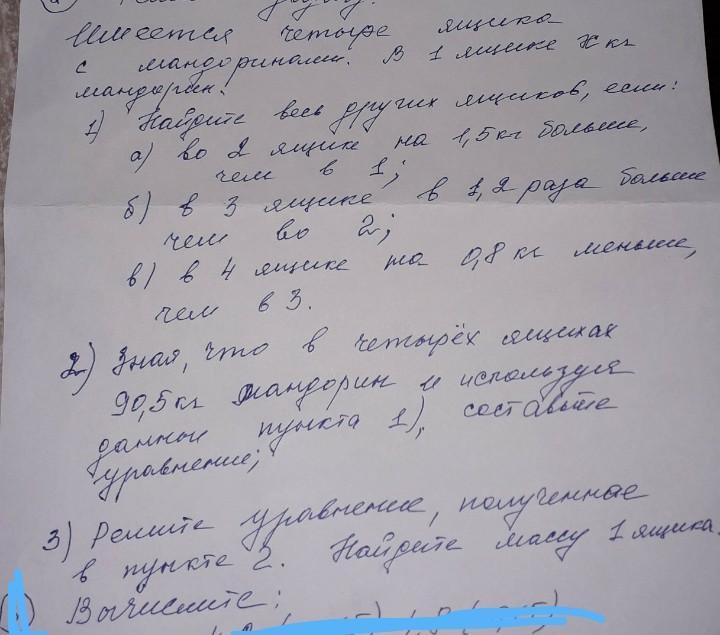 Имеется четыре ящика
с мандоринами. В 1 ящике x кг
мандорин.
1) Найдите весь других ящиков, если:
а) во 2 ящике на 1,5 кг больше,
чем в 1;
б) в 3 ящике в 1,2 раза больше
чем во 2;
в) в 4 ящике на 0,8 кг меньше,
чем в 3.
2) Зная, что в четырёх ящиках
90,5 кг мандорин и используя
данные пункта 1), составьте
уравнение;
3) Решите уравнение, полученное
в пункте 2. Найдите массу 1 ящика.
Вычислите: